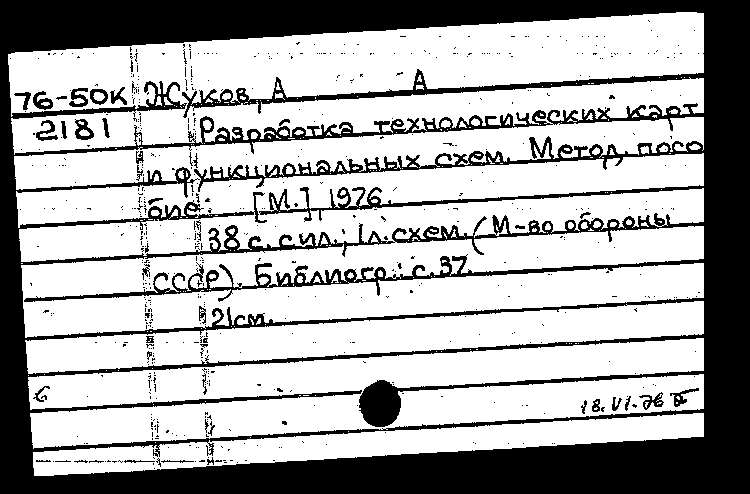 76-50К Жуков, А А
2181 Разработка технологических карт
и функциональных схем. Метод. посо
бие. [М.], 1976.
38 с. с ил.; 1 л. схем. (М-во обороны
СССР). Библиогр.: с. 37.
21 см.
6
18.VI.76